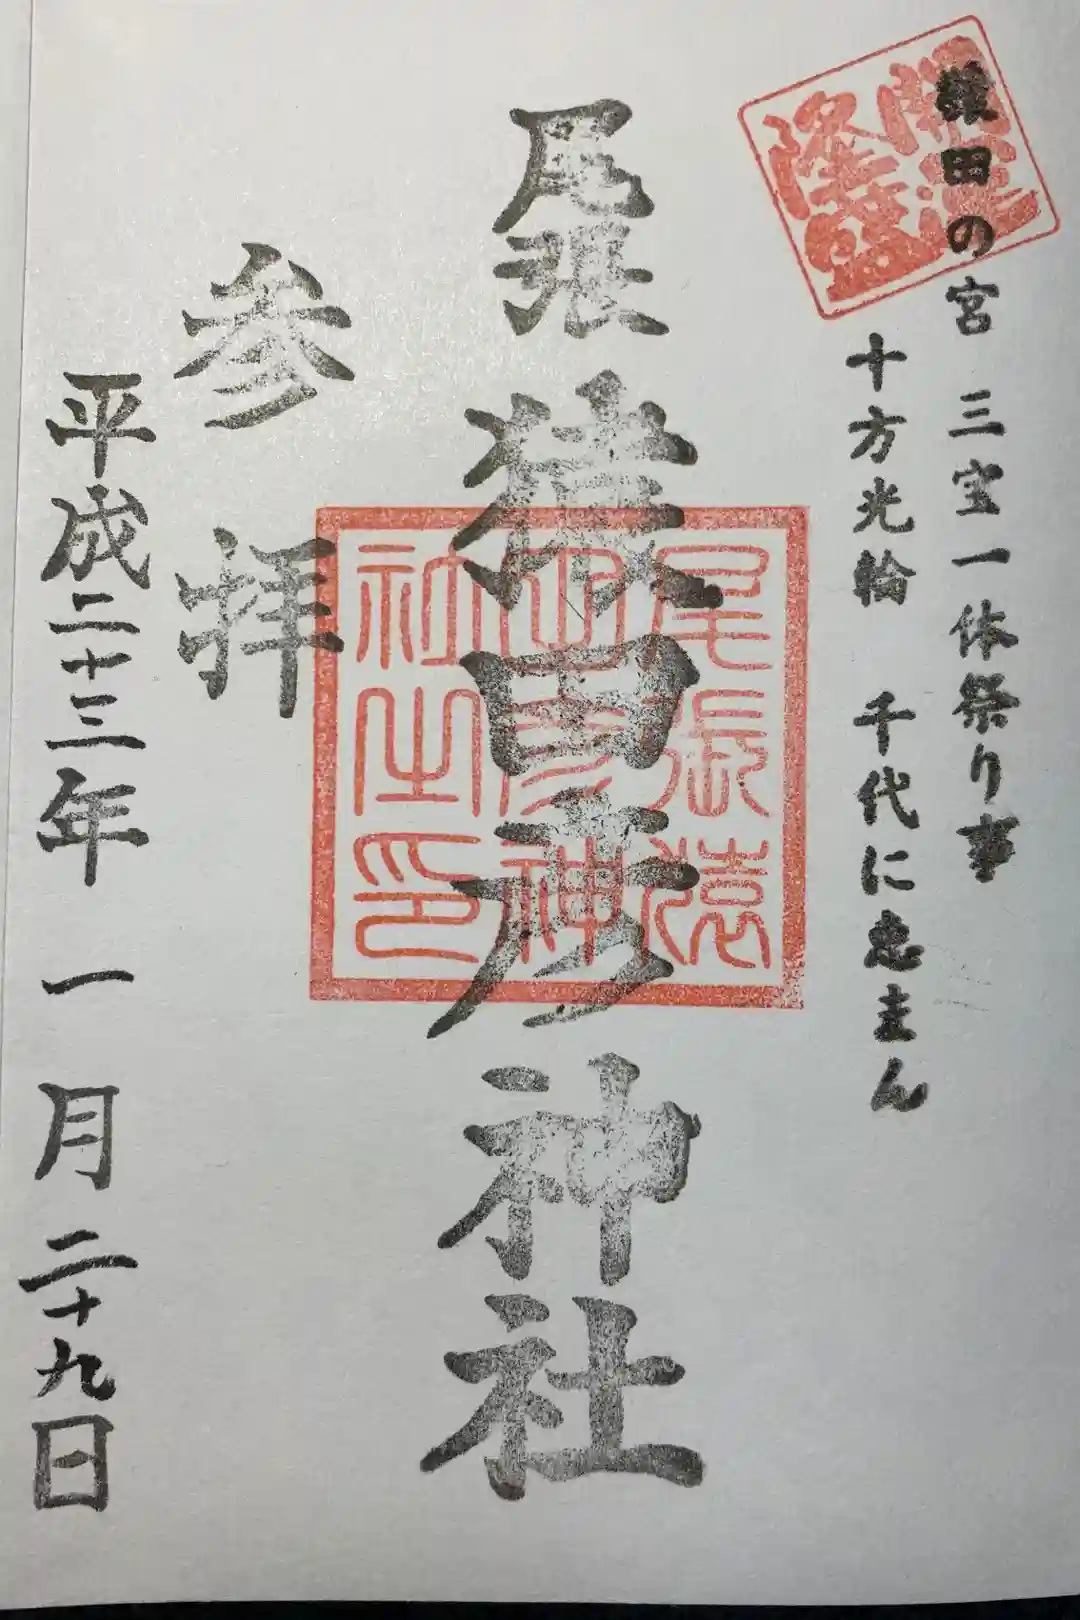 猿田の宮 三宝一体祭り事
十方光輪 千代に恵まん
尾張猿田彦神社
尾張猿
田彦神
社之印
参拝
平成二十三年 一月 二十九日